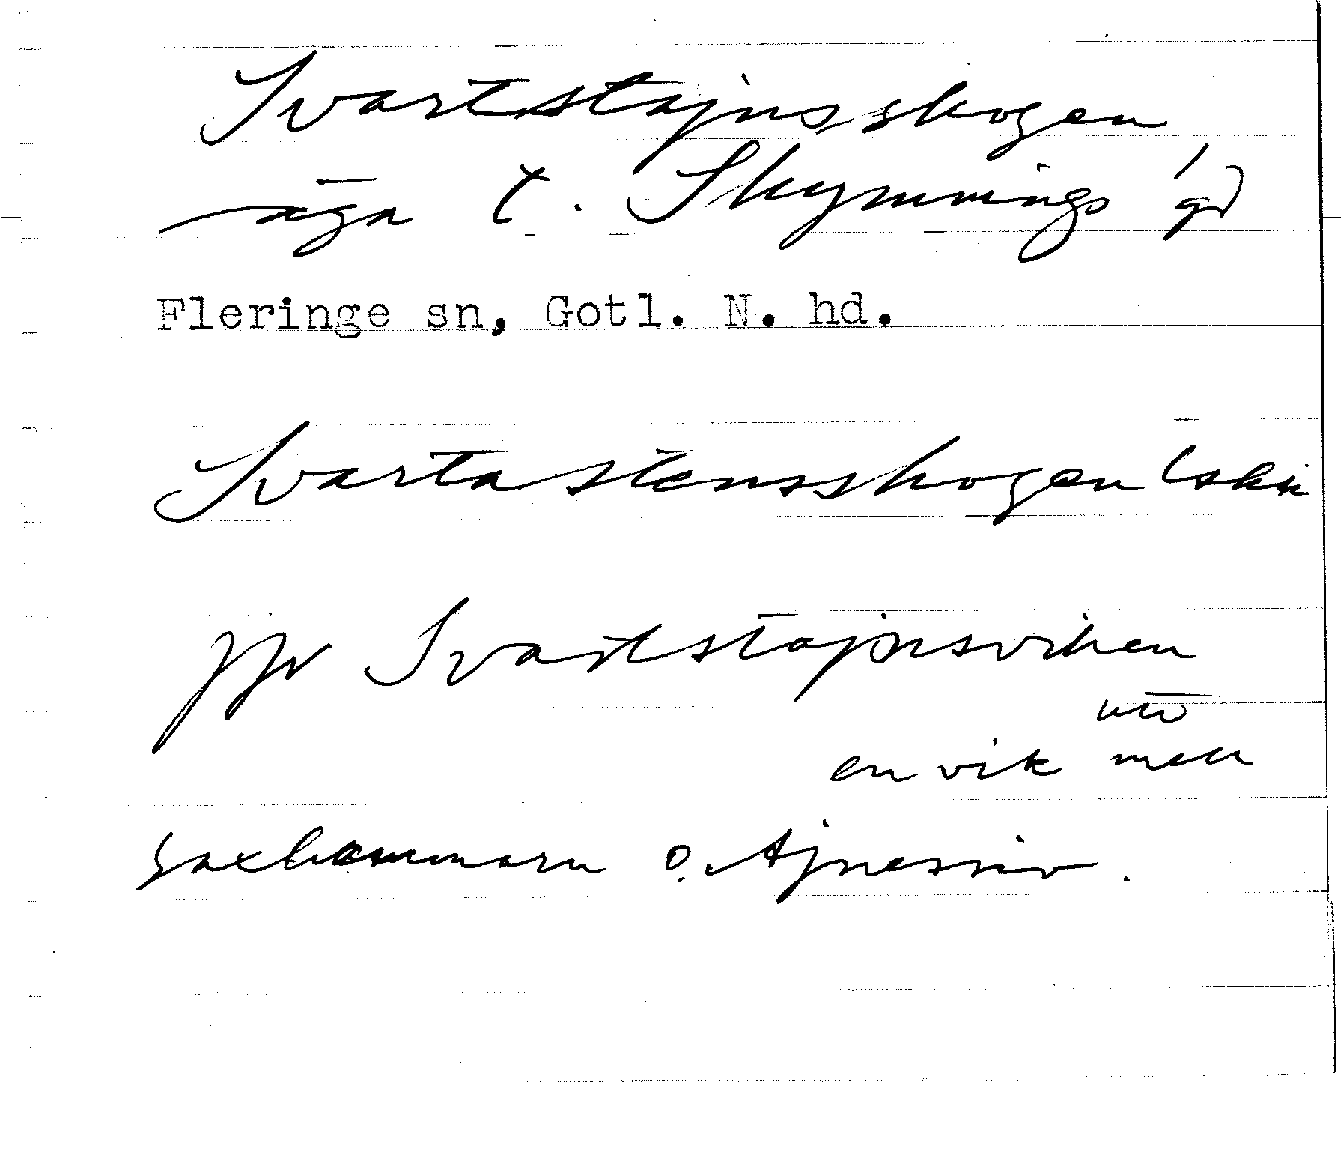 Svartstajnsskogen
äga t. Skymnings gd
Fleringe sn, Gotl. N. hd.
Svartastensskogen
jfr Svartstajnsviken
en vik mell
Saxhammarn o. Ajnesviv.